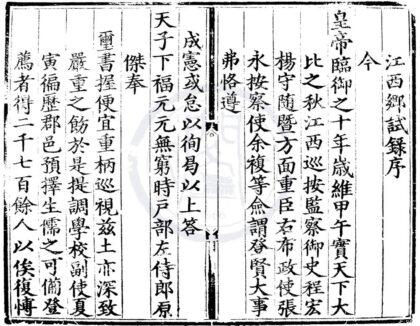 江西鄉試錄序
今
皇帝臨御之十年歲維甲午實天下大
比之秋江西巡按監察御史程宏
楊守隨暨方面重臣右布政使張
永按察使余複等僉謂登賢大事
弗恪遵
成憲或怠以徇曷以上答
天子下福元元無窮時戶部左侍郎原
傑奉
璽書握便宜重柄巡視茲土亦深致
嚴重之飭於是提調學校副使夏
寅徧歷郡邑預擇生儒之可備登
薦者得二千七百餘人以俟復慱